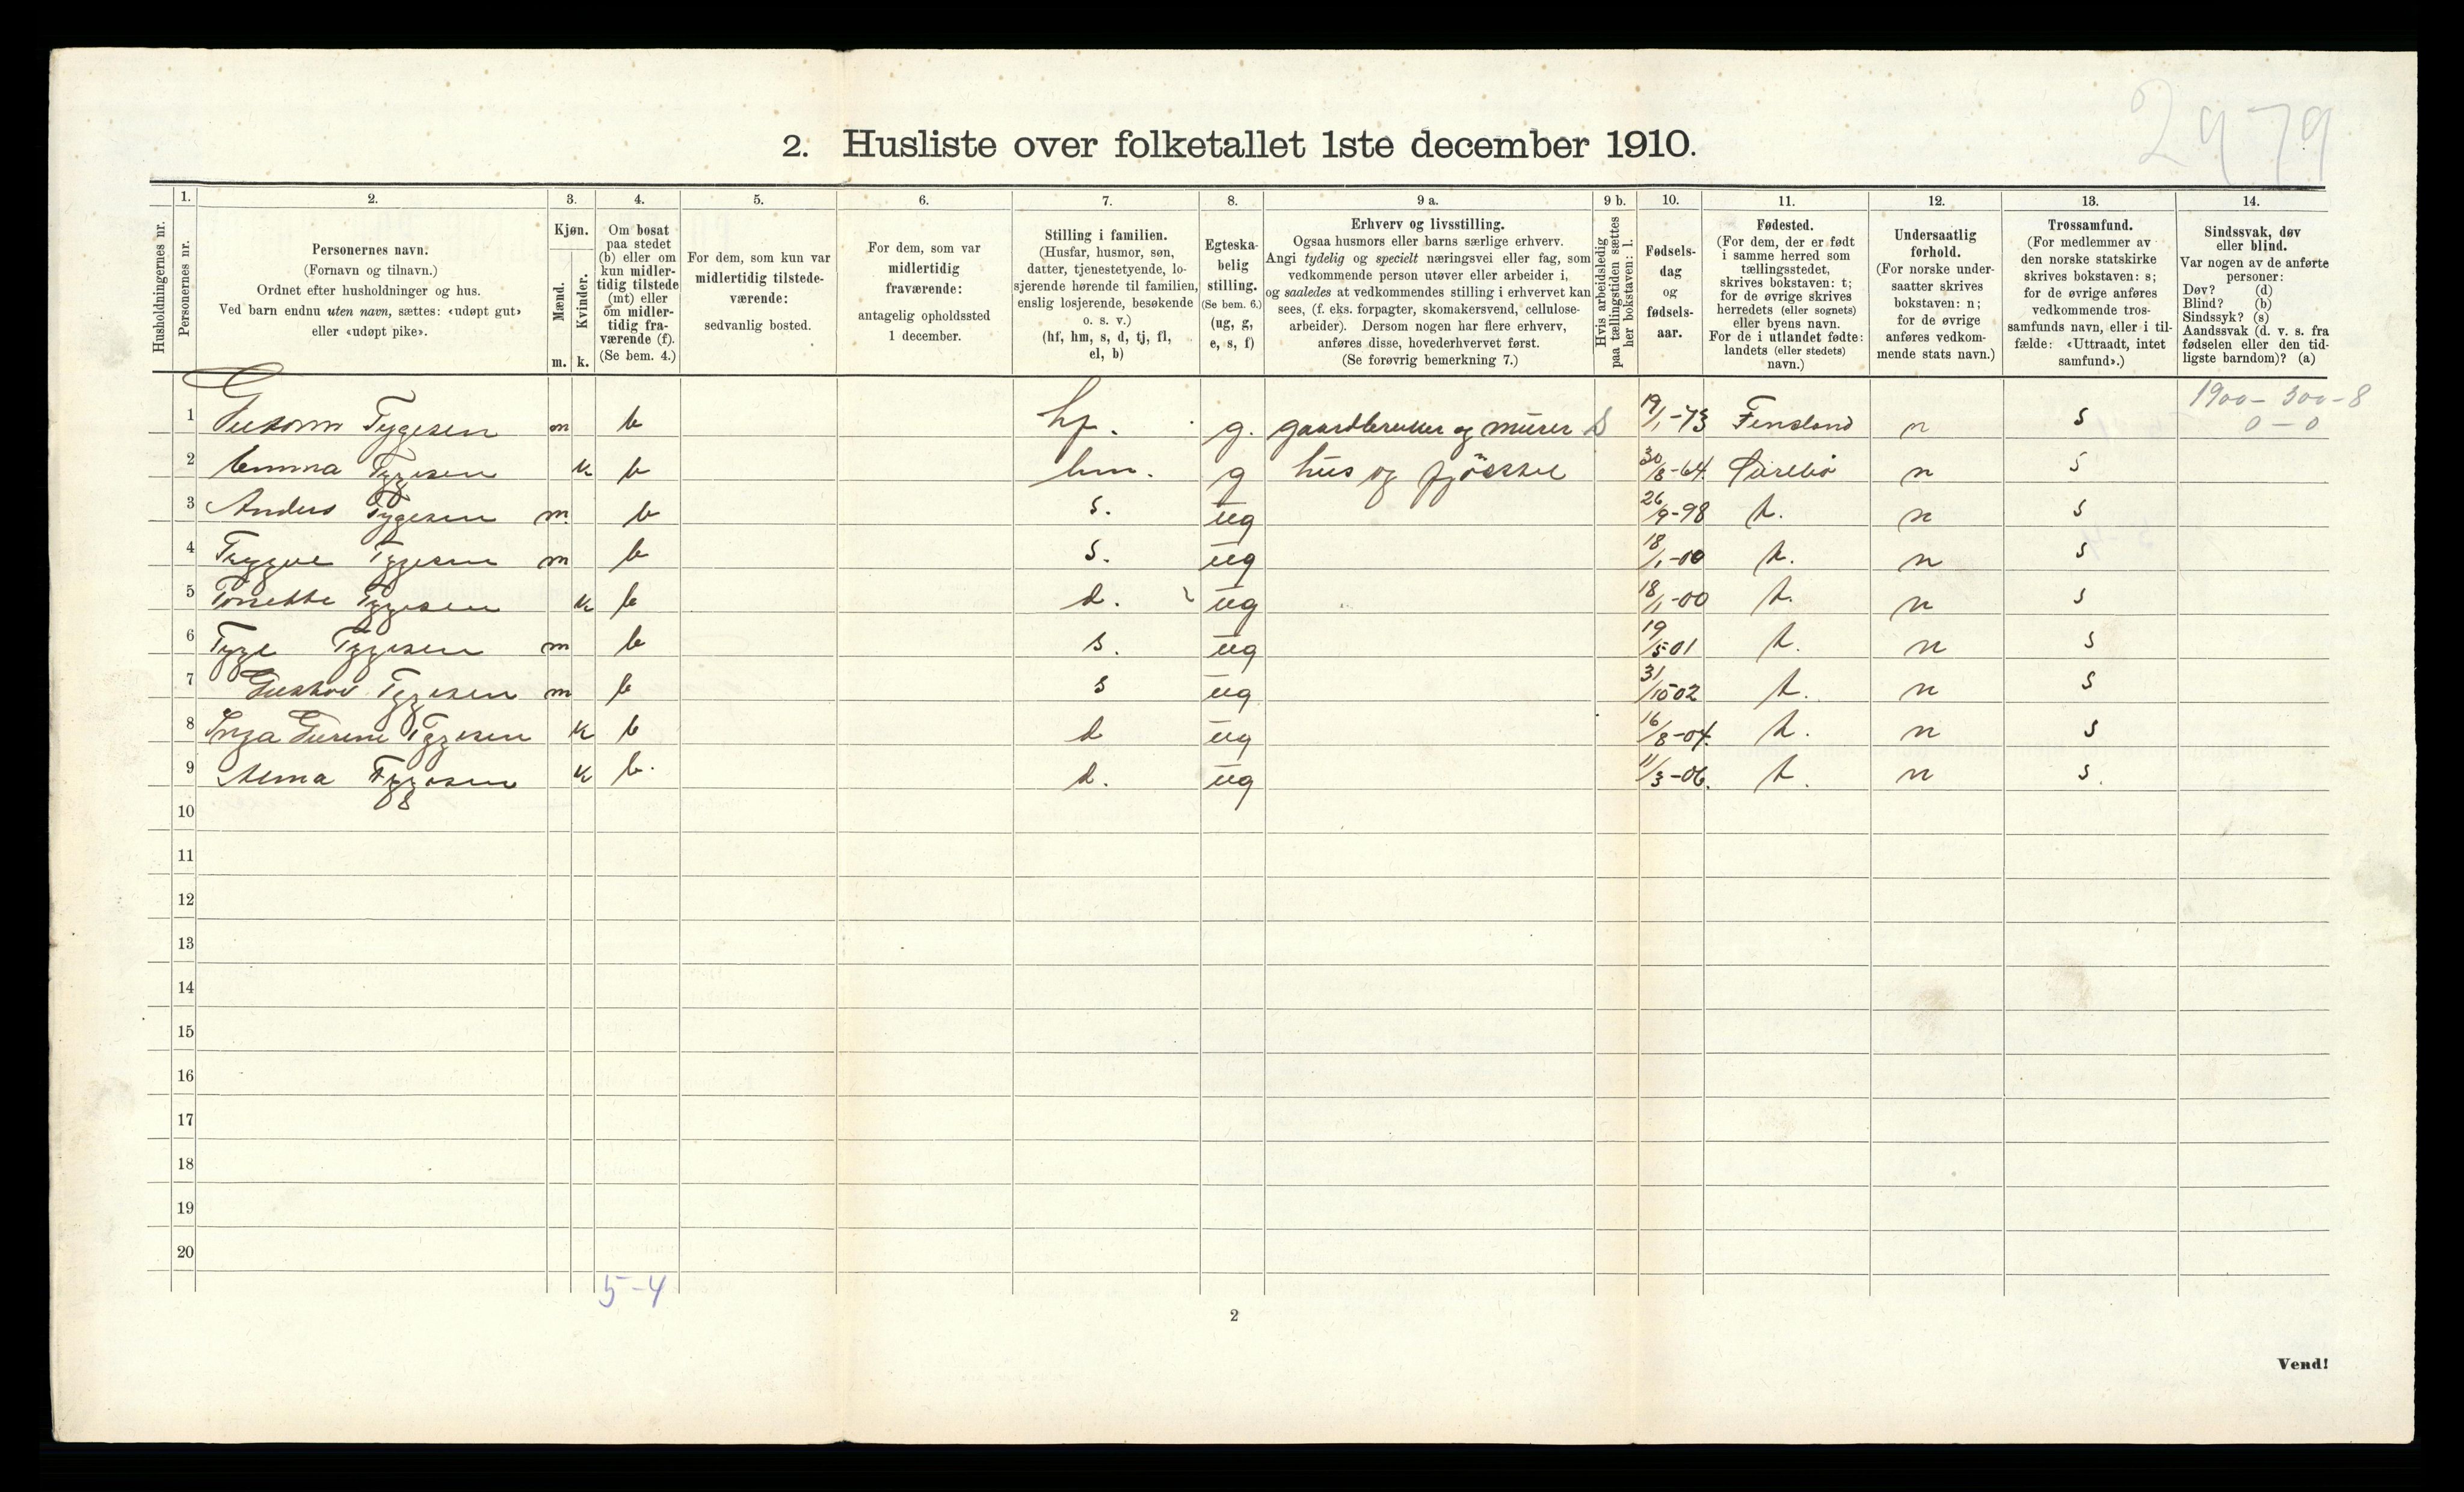 2979
2. Husliste over folketallet 1ste december 1910.
1. 2. 3. 4. 5. 6. 7. 8. 9 a. 9 b. 10. 11. 12. 13. 14.
Husholdningernes nr.
Personernes nr.
Personernes navn.
(Fornavn og tilnavn.)
Ordnet efter husholdninger og hus.
Ved barn endnu uten navn, sættes: «udøpt gut»
eller «udøpt pike».
Kjøn.
Mænd.
Kvinder.
m. k.
Om bosat
paa stedet
(b) eller om
kun midler-
tidig tilstede
(mt) eller
om midler-
tidig fra-
værende (f).
(Se bem. 4.)
For dem, som kun var
midlertidig tilstede-
værende:
sedvanlig bosted.
For dem, som var
midlertidig
fraværende:
antagelig opholdssted
1 december.
Stilling i familien.
(Husfar, husmor, søn,
datter, tjenestetyende, lo-
sjerende hørende til familien,
enslig losjerende, besøkende
o. s. v.)
(hf, hm, s, d, tj, fl,
el, b)
Egteska-
belig
stilling.
(Se bem. 6.)
(ug, g,
e, s, f)
Erhverv og livsstilling.
Ogsaa husmors eller barns særlige erhverv.
Angi tydelig og specielt næringsvei eller fag, som
vedkommende person utøver eller arbeider i,
og saaledes at vedkommendes stilling i erhvervet kan
sees, (f. eks. forpagter, skomakersvend, cellulose-
arbeider). Dersom nogen har flere erhverv,
anføres disse, hovederhvervet først.
(Se forøvrig bemerkning 7.)
Hvis arbeidsledig
paa tællingstiden sættes
her bokstaven: l.
Fødsels-
dag
og
fødsels-
aar.
Fødested.
(For dem, der er født
i samme herred som
tællingsstedet,
skrives bokstaven: t;
for de øvrige skrives
herredets (eller sognets)
eller byens navn.
For de i utlandet fødte:
landets (eller stedets)
navn.)
Undersaatlig
forhold.
(For norske under-
saatter skrives
bokstaven: n;
for de øvrige
anføres vedkom-
mende stats navn.)
Trossamfund.
(For medlemmer av
den norske statskirke
skrives bokstaven: s;
for de øvrige anføres
vedkommende tros-
samfunds navn, eller i til-
fælde: «Uttraadt, intet
samfund».)
Sindssvak, døv
eller blind.
Var nogen av de anførte
personer:
Døv? (d)
Blind? (b)
Sindssyk? (s)
Aandssvak (d. v. s. fra
fødselen eller den tid-
ligste barndom)? (a)
1900-300-8
0-0
1 Tygesen m b hf. g. gaardbruker og murer S 19/1-73 Finsland n s
2 Emma Tygesen k b hm. g hus og fjösstel 30/8-64. n s
3 Anders Tygesen m. b s. ug 26/9-98 t. n s
4 Trygve Tygesen m b s. ug 18/1-00 t. n s
5 Tygesen k b d. ug 18/1-00 t. n s
6 Tyge Tygesen m b s. ug 19/5 01 t. n s
7 Gustav Tygesen m b s ug 31/10 02 t. n s
8 Inga Gurine Tygesen k b d ug 16/8-04. t. n s
9 Alma Tygesen k b. d. ug 11/3-06. t. n s.
10
11
12
13
14
15
16
17
18
19
20
5-4
2
Vend!